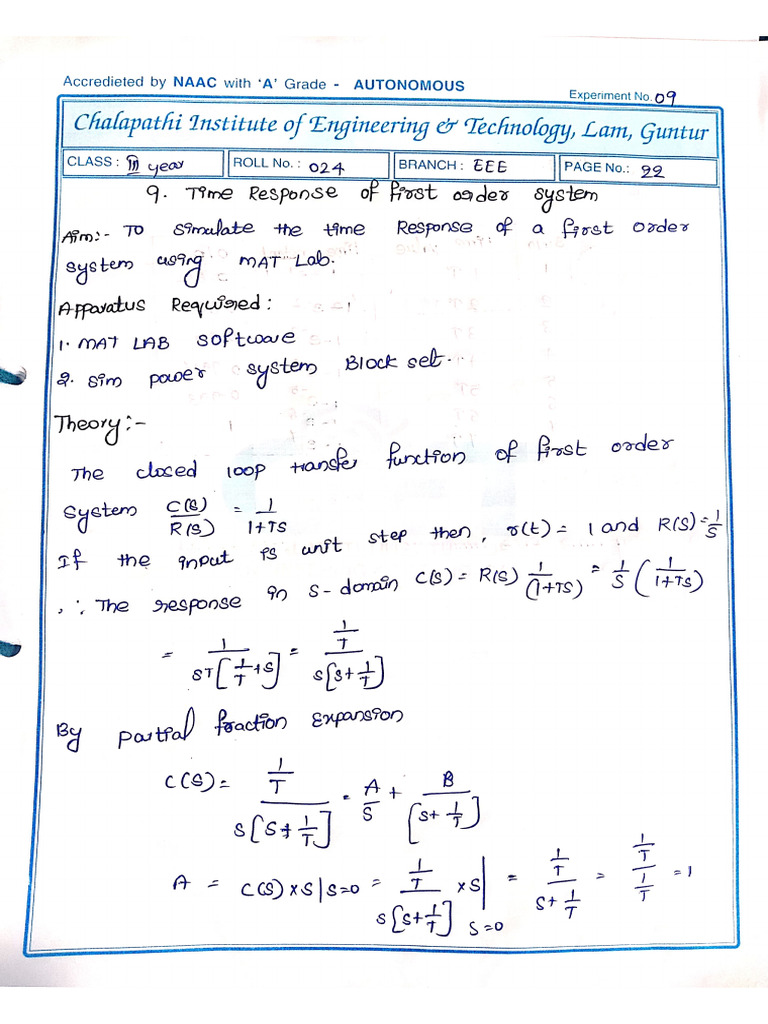 Accredieted by NAAC with 'A' Grade - AUTONOMOUS
Experiment No. 09
Chalapathi Institute of Engineering & Technology, Lam, Guntur
CLASS : III year ROLL No. : 024 BRANCH : EEE PAGE No.: 22
9. Time Response of first order system
Aim:- To simulate the time Response of a first order
system using MAT Lab.
Apparatus Required:
1. MAT LAB software
2. Sim power system Block set.
Theory:-
The closed loop transfer function of first order
system C(S)/R(S) = 1/1+TS
If the input is unit step then, r(t) = 1 and R(S) = 1/S
∴ The response in S-domain C(S) = R(S) 1/(1+TS) = 1/S (1/1+TS)
= 1/ST[1/T+S] = 1/T/S[S+1/T]
By partial fraction Expansion
C(S) = 1/T/S[S+1/T] = A/S + B/[S+1/T]
A = C(S)×S|S=0 = 1/T/S[S+1/T] ×S|S=0 = 1/T/S+1/T = 1/T/1/T = 1